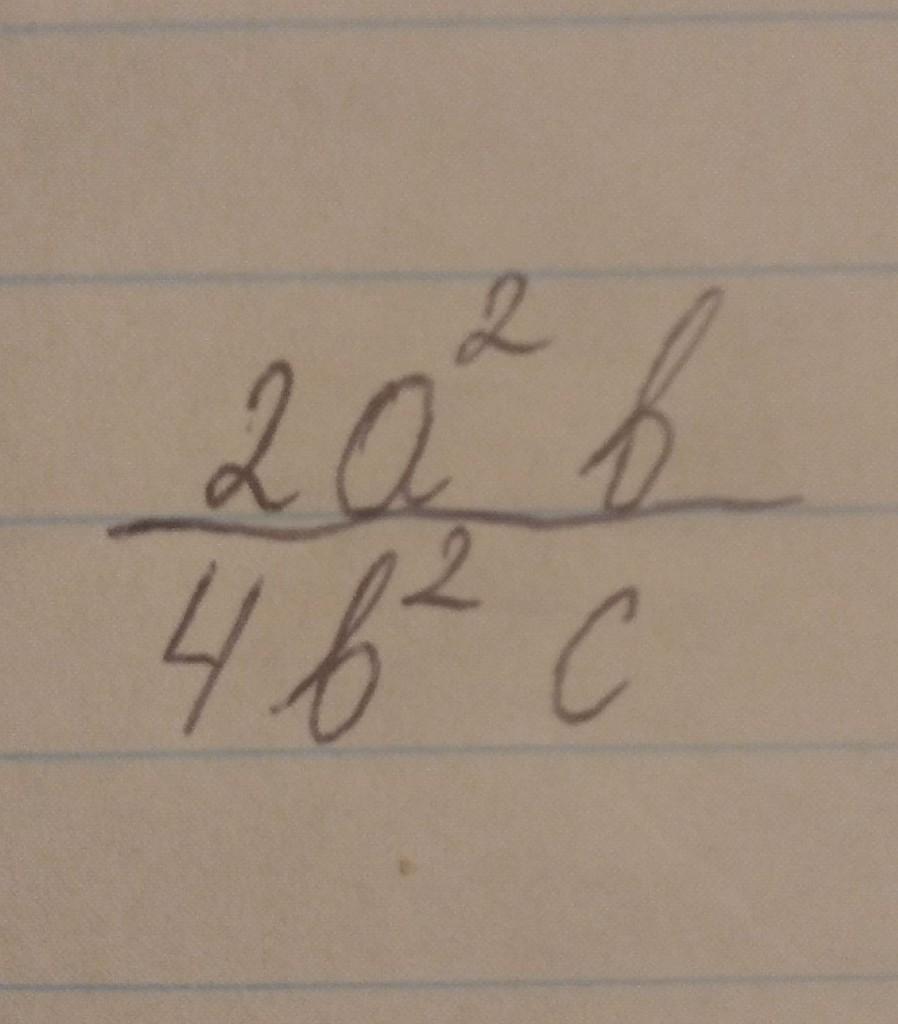 2a² b
4b² c